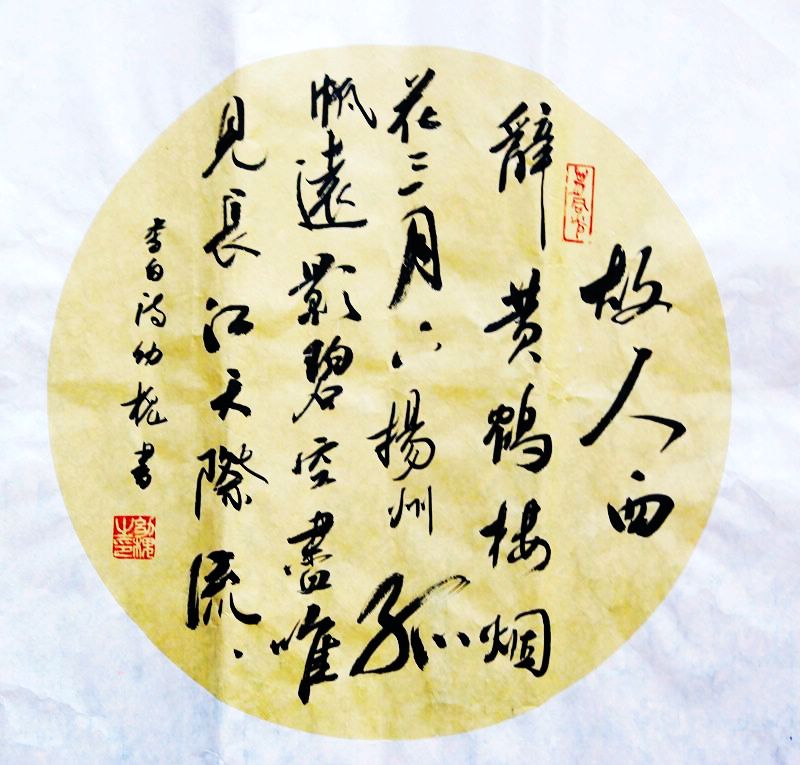 故人西
辭黄鶴楼烟
花三月下揚州孤
帆遠影碧空盡唯
見長江天際流
李白诗幼槐書